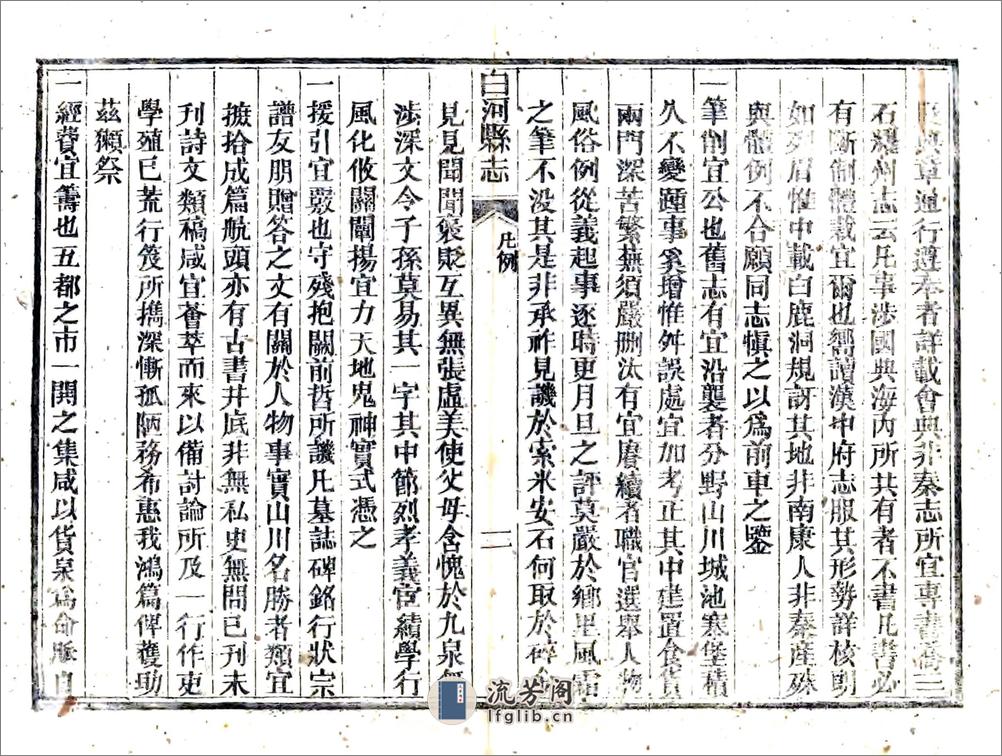 典章通行遵奉者詳載會典非秦志所宜專書喬三
石耀州志云凡事涉國典海內所共有者不書凡書必
有斷制體裁宜爾也嚮讀漢中府志服其形勢詳核明
如列眉惟中載白鹿洞規訝其地非南康人非秦產殊
與體例不合願同志慎之以爲前車之鑒
一筆削宜公也舊志有宜沿襲者分野山川城池寨堡積
久不變踵事奚增惟舛誤處宜加考正其中建置食貨
兩門深苦繁蕪須嚴刪汰有宜賡續者職官選舉人物
風俗例從義起事逐時更月旦之評莫嚴於鄉里風霜
之筆不没其是非承祚見譏於索米安石何取於碑金
白河縣志
凡例
二
見見聞聞褒貶互異無張虛美使父母含愧於九泉無
涉深文令子孫莫易其一字其中節烈孝義宦績學行
風化攸關闡揚宜力天地鬼神實式憑之
一援引宜覈也守殘抱闕前哲所譏凡墓誌碑銘行狀宗
譜友朋贈答之文有關於人物事實山川名勝者類宜
摭拾成篇航頭亦有古書井底非無私史無問已刊未
刊詩文類稿咸宜薈萃而來以備討論所及一行作吏
學殖已荒行笈所擕深慚孤陋務希惠我鴻篇俾獲助
茲獺祭
一經費宜籌也五都之市一鬨之集咸以貨泉爲命脈自
流芳阁
lfglib.cn